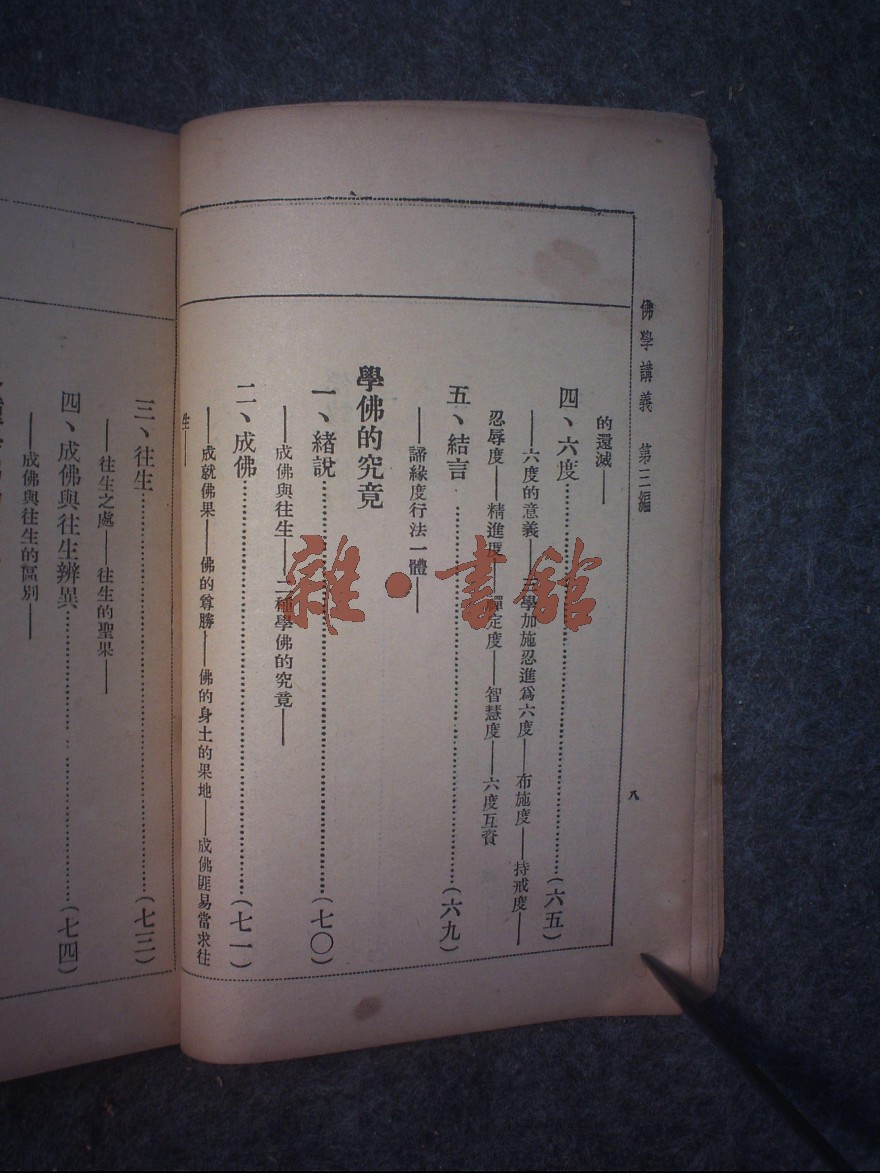 佛學講義 第三編
八
的還滅——
四、六度……(六五)
——六度的意義——三學加施忍進爲六度——布施度——持戒度——
忍辱度——精進度——禪定度——智慧度——六度互資
五、結言……(六九)
——諦緣度行法一體——
學佛的究竟
一、緒說……(七〇)
——成佛與往生——二種學佛的究竟——
二、成佛……(七一)
——成就佛果——佛的尊勝——佛的身土的果地——成佛匪易當求往
生——
三、往生……(七三)
——往生之處——往生的聖果——
四、成佛與往生辨異……(七四)
——成佛與往生的區別——
雜·書館